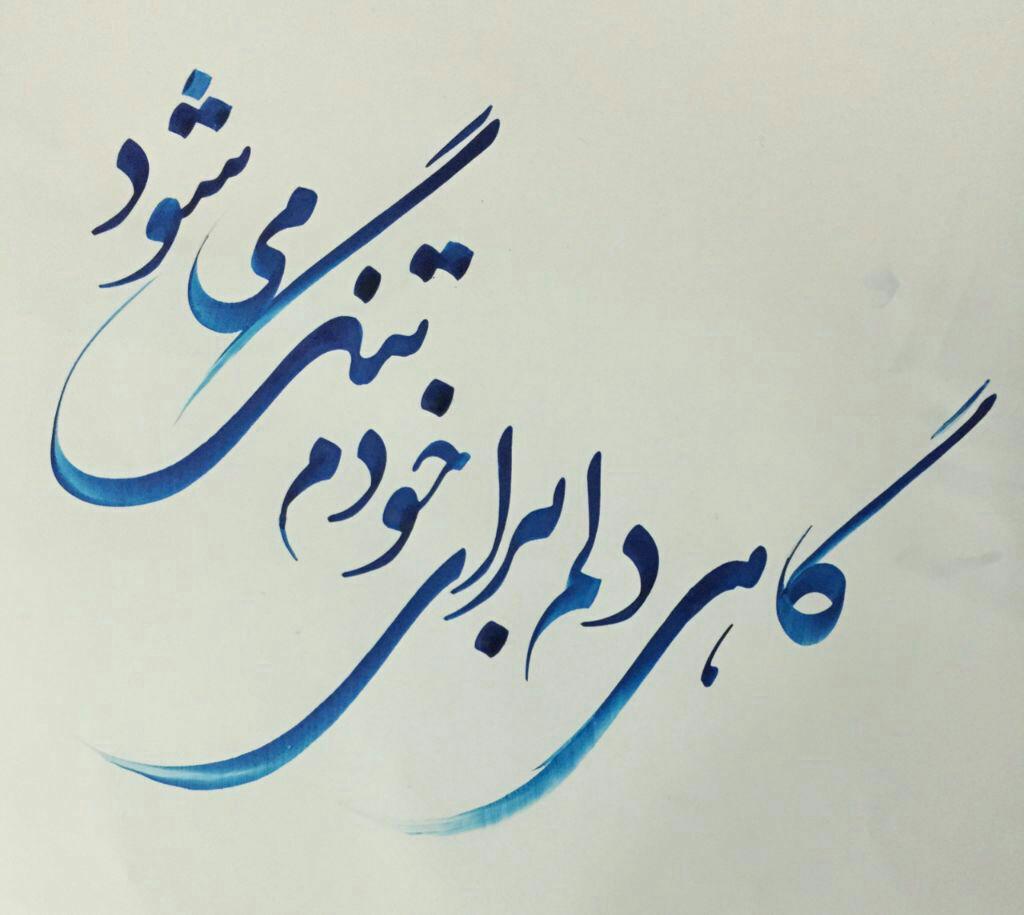 گاهی دلم برای خودم
تنگ می شود